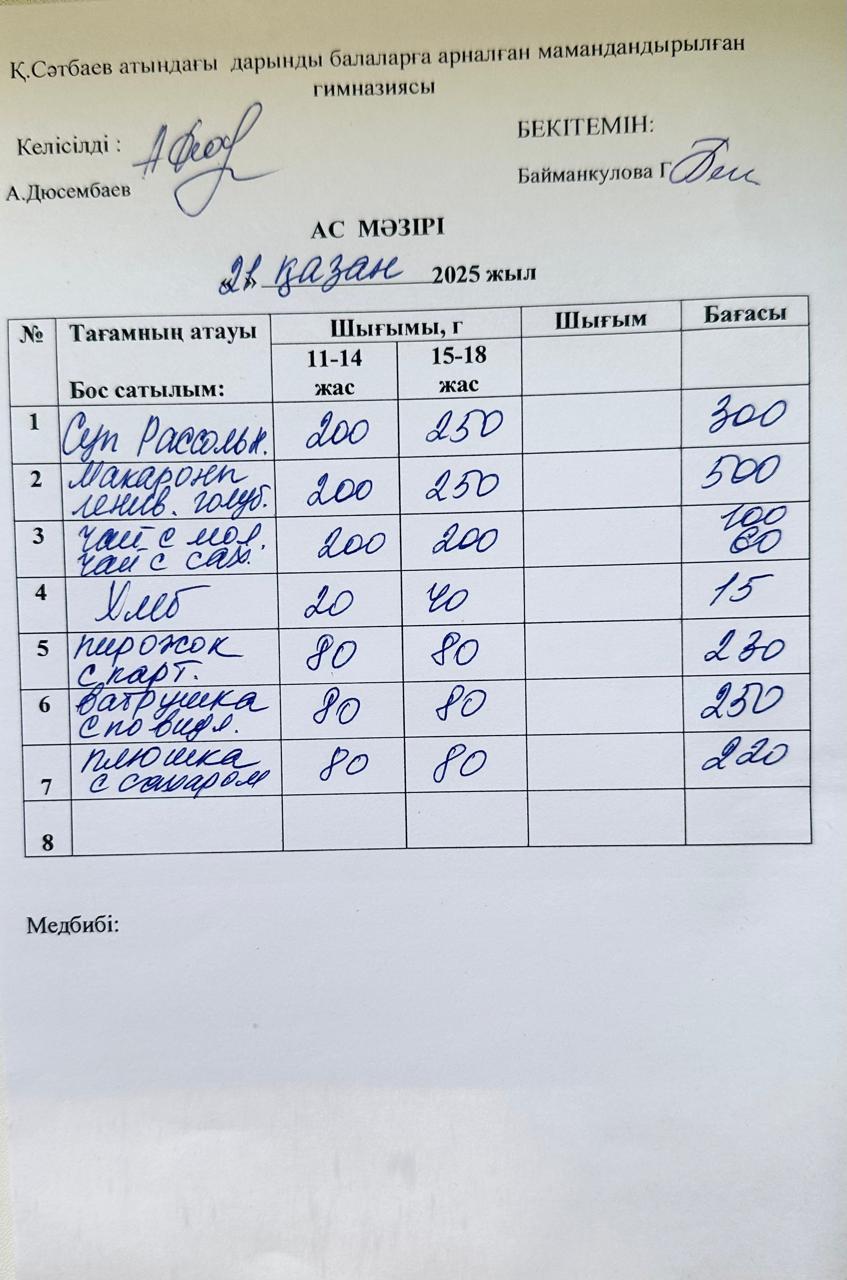 Қ.Сәтбаев атындағы дарынды балаларға арналған мамандандырылған
гимназиясы
Келісілді :
БЕКІТЕМІН:
А.Дюсембаев
Байманкулова Г
АС МӘЗІРІ
«21» қазан 2025 жыл
№ Тағамның атауы Шығымы, г Шығым Бағасы
Бос сатылым: 11-14 жас 15-18 жас
1 Суп Рассольн. 200 250 300
2 Макароны 200 250 500
ленив. голуб.
3 чай с мол. 200 200 100
чай с сах. 60
4 Хлеб 20 40 15
5 пирожок 80 80 230
с карт.
6 ватрушка 80 80 250
с повидл.
7 плюшка 80 80 220
с сахаром
8
Медбибі: